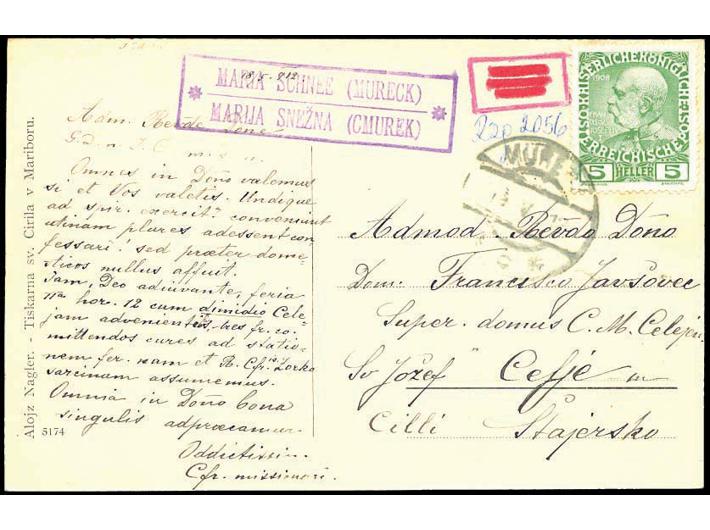 MARIA SCHNEE (MURECK)
MARIJA SNEŽNA (CMUREK)
Rap 2056
MURE
1908
KAISERLICHE KÖNIGLICHE
ÖSTERREICHISCHE
5 HELLER 5
Adm. Revde Done
Omnes in Dño valemus
si et Vos valetis. Undique
ad spir. exercit. conveniunt
utinam plures adessent con
fessari! sed præter dome-
sticos nullus affuit.
Jam, Deo adiuvante, feria
IIa hor. 12 cum dimidio Cele-
jam advenientes, tres fr. co-
mittendos cures ad statio-
nem fer. nam et R. Cfris Zorko
sarcinam assumemus.
Omnia in Dño bona
singulis adprecamur.
Addictissimi
Cfr. missionari.
Admod. Revdo Dono
Dom. Francisco Javšovec
Super. domus C. M. Celejen.
Sv Jožef Celje
Cilli Štajersko
Alojz Nagler. - Tiskarna sv. Cirila v Mariboru.
5174